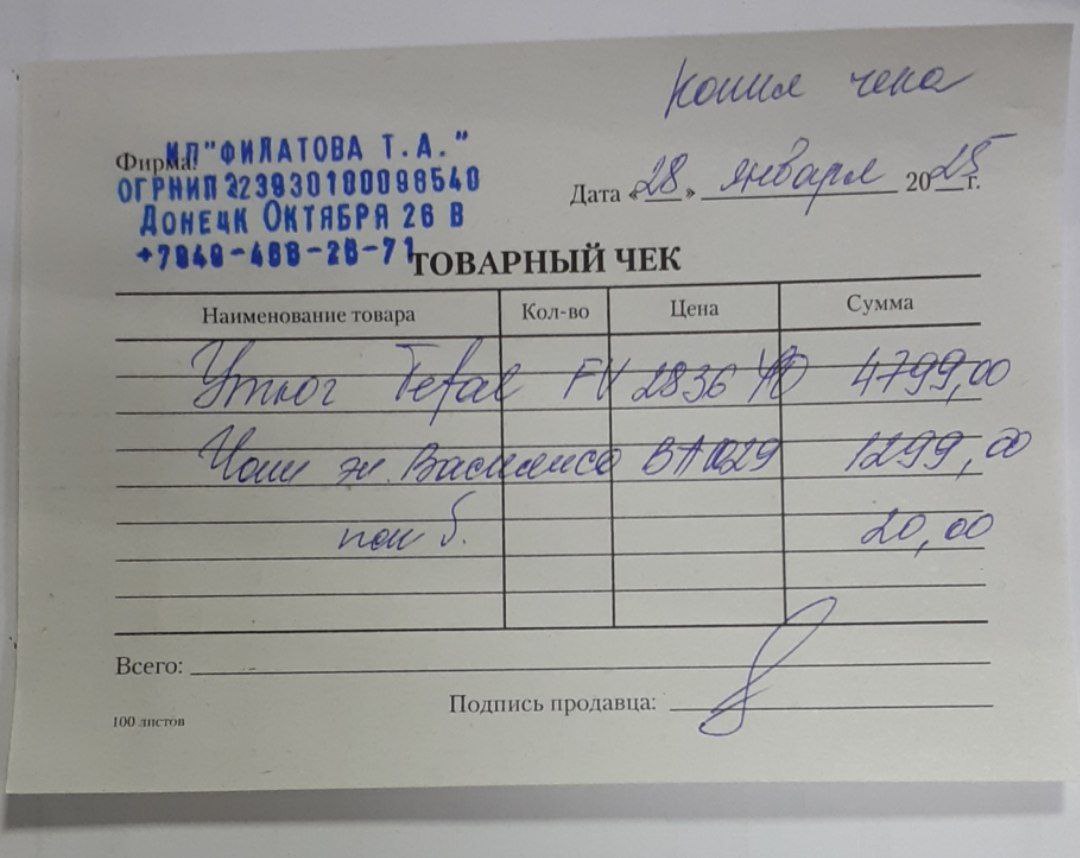 Копия чека
Фирма: ИП "ФИЛАТОВА Т.А."
ОГРНИП 323930100098540
ДОНЕЦК ОКТЯБРЯ 26 В
Дата «28» января 2025 г.
ТОВАРНЫЙ ЧЕК
Наименование товара Кол-во Цена Сумма
Утюг Tefal FV 2836 4799,00
ж. Василиса ВА 1029 1299,00
20,00
Всего:
Подпись продавца:
100 листов